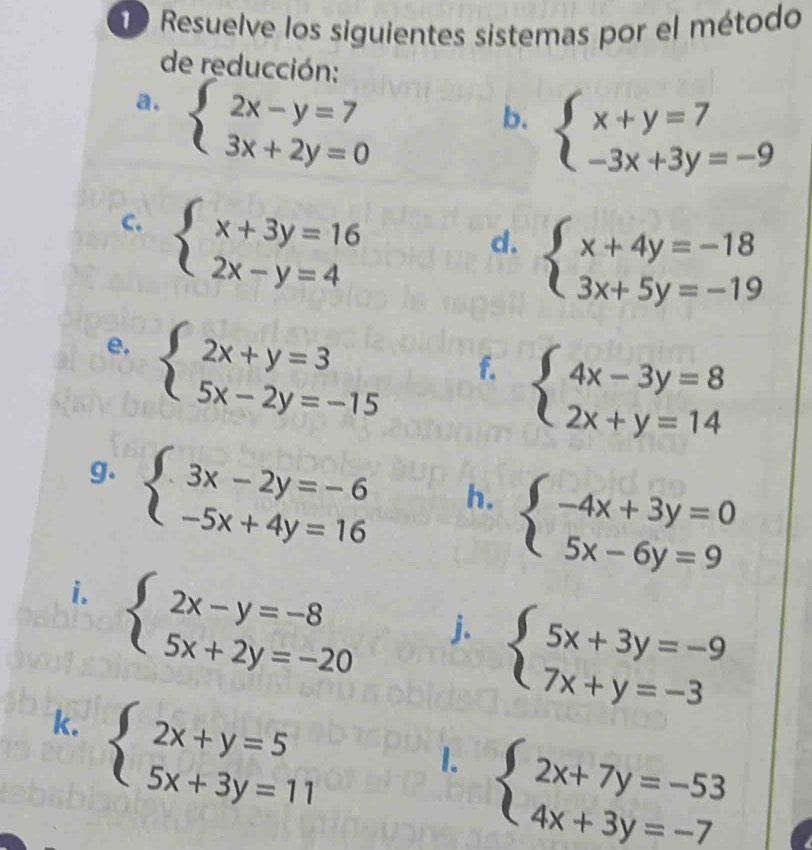 1 Resuelve los siguientes sistemas por el método
de reducción:
a. { 2x − y = 7
3x + 2y = 0
b. { x + y = 7
−3x +3y = −9
c. { x + 3y = 16
2x − y = 4
d. { x + 4y = −18
3x+ 5y = −19
e. { 2x + y = 3
5x − 2y = −15
f. { 4x − 3y = 8
2x + y = 14
g. { 3x − 2y = − 6
−5x + 4y = 16
h. { −4x + 3y = 0
5x − 6y = 9
i. { 2x − y = −8
5x + 2y = −20
j. { 5x + 3y = −9
7x + y = −3
k. { 2x + y = 5
5x + 3y = 11
l. { 2x+ 7y = −53
4x + 3y = −7